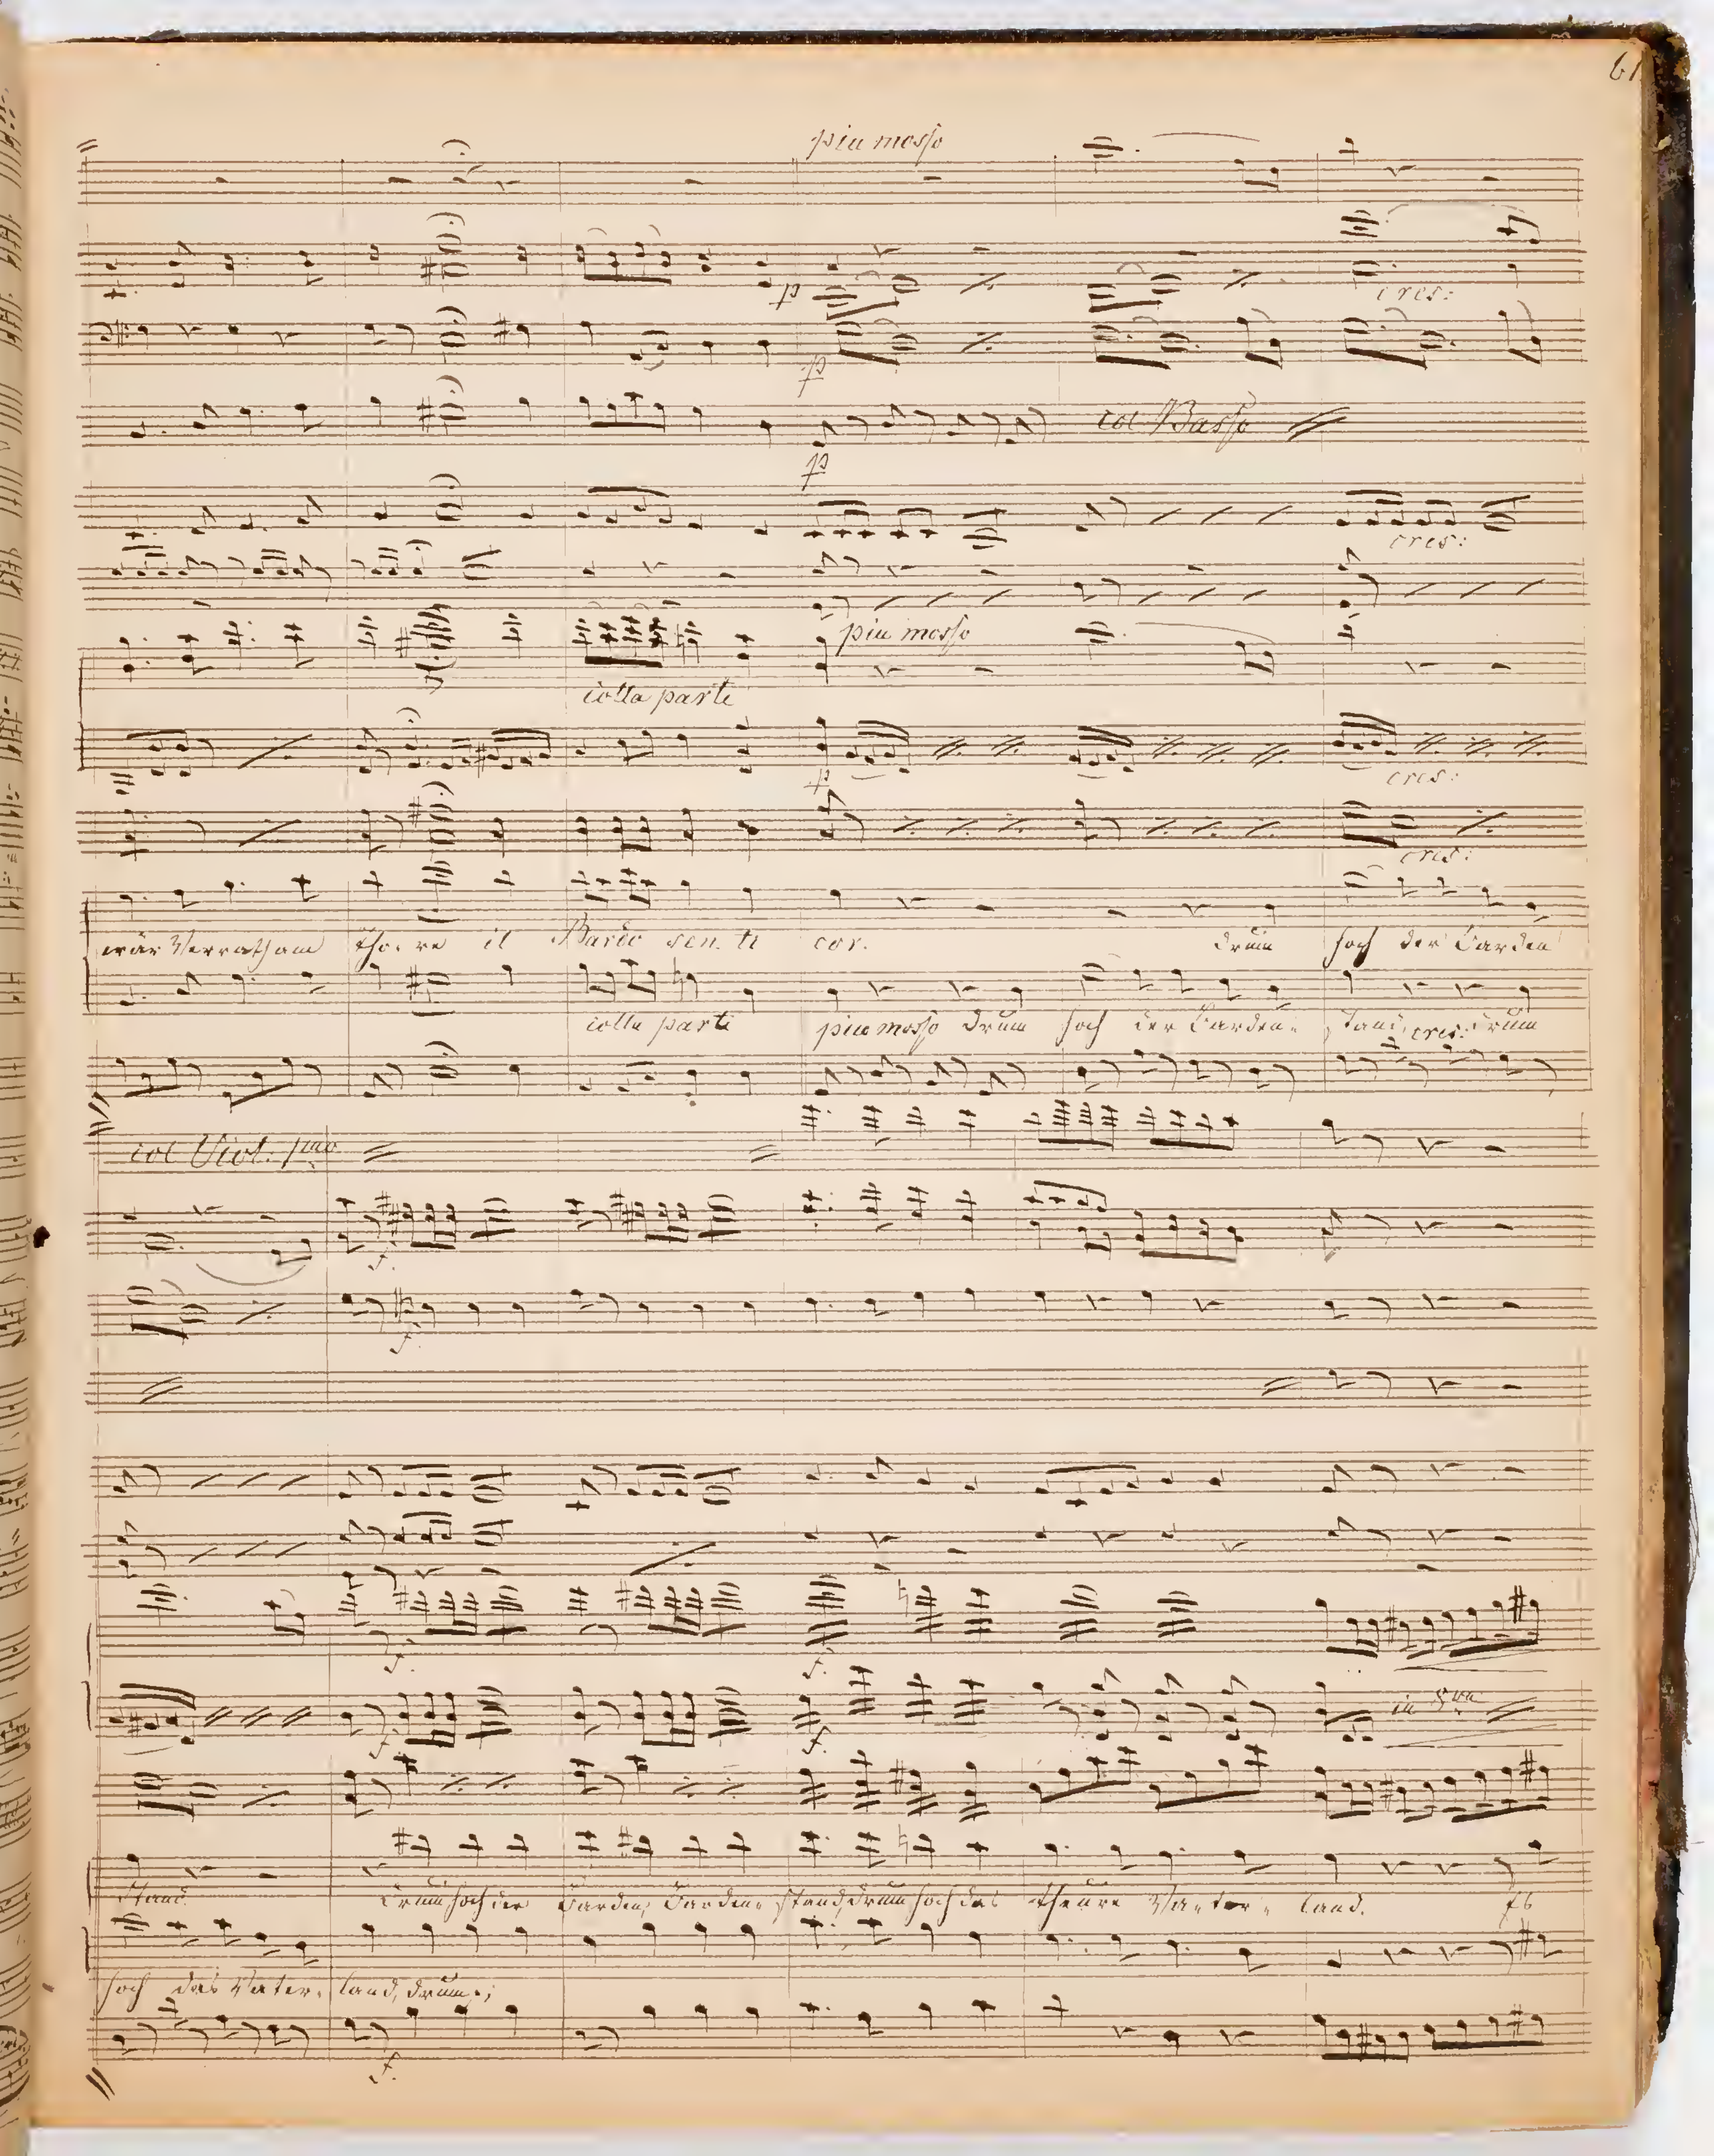 61
piu mosso
p
cres:
p
col Basso
p
cres:
piu mosso
colla parte
p
cres:
cres:
wär Verrath am Tho-re il Bardo sen-ti cor. Drum hoch der Barden
colla parte piu mosso Drum hoch der Barden- stand, cres: Drum
col Viol. pmo
f.
f.
f. f.
f. f. in 8va
Stand. Drum hoch der Barden, Barden- stand, Drum hoch das theure Va-ter- land. Es
hoch das Vater- land, Drum
f.